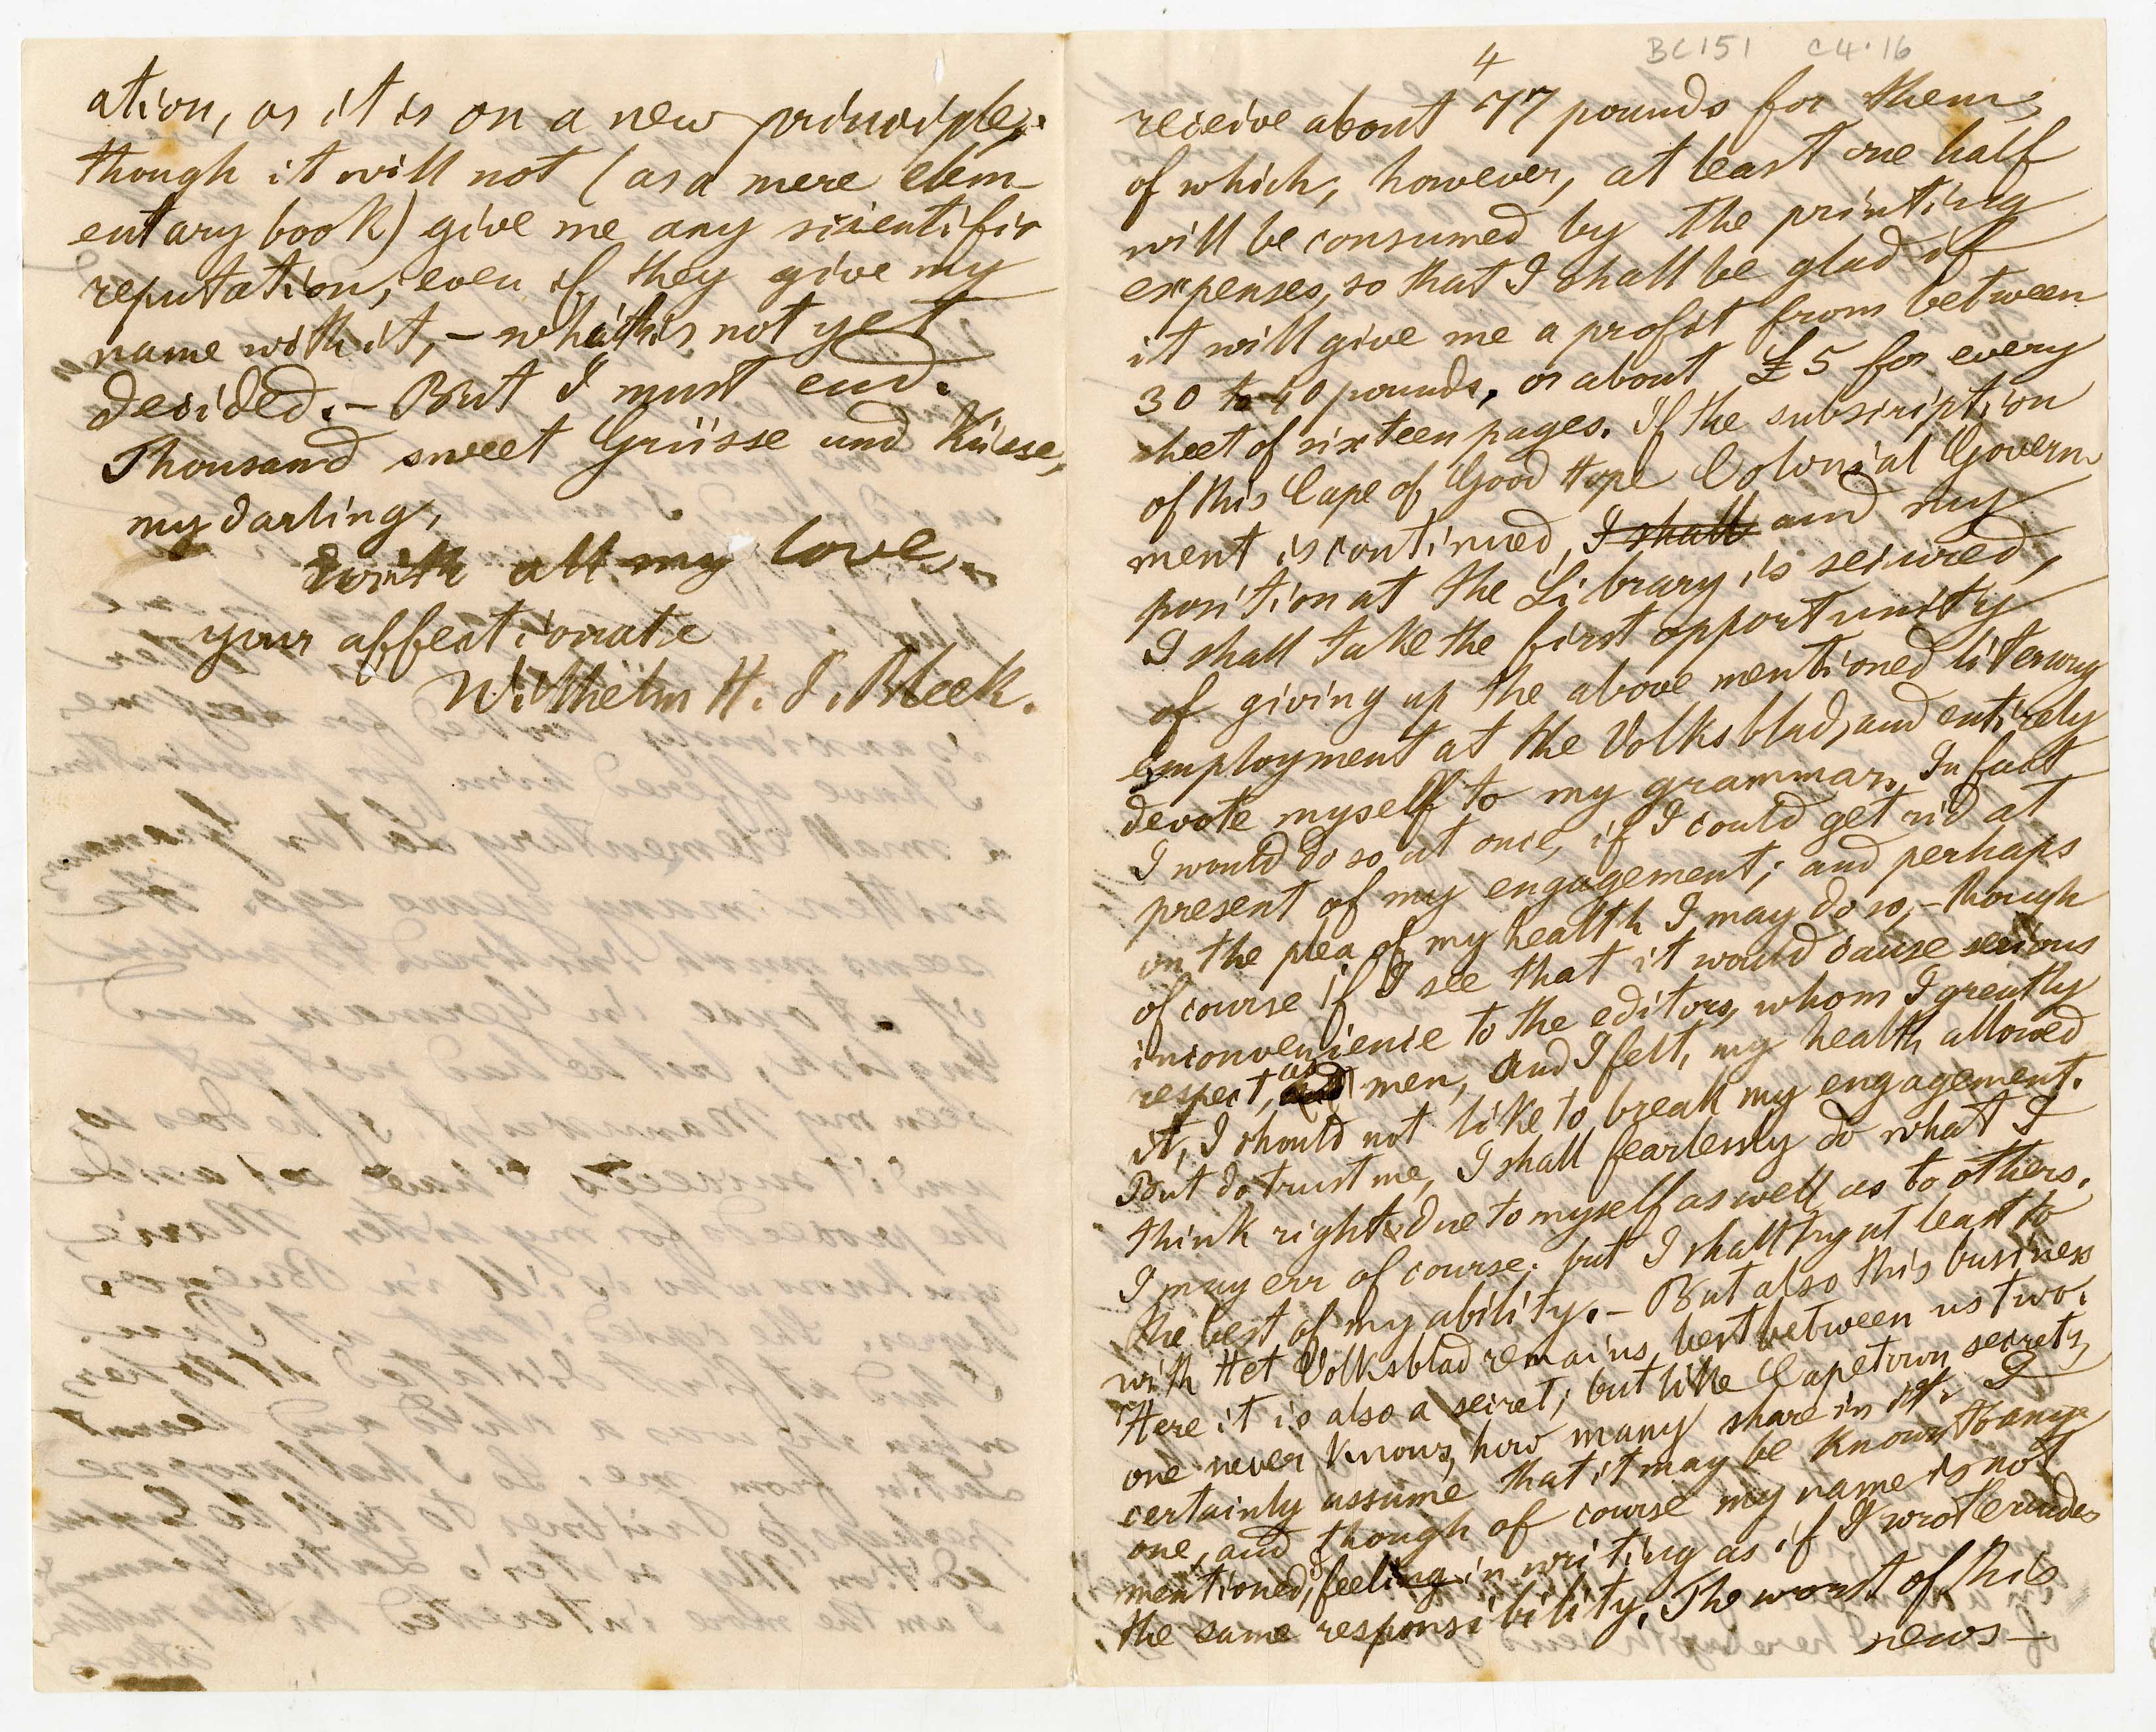 ation, as it is on a new principle,
though it will not (as a mere elem-
entary book) give me any scientific
reputation, even if they give my
name with it, – which is not yet
decided. – But I must end.
Thousand sweet Grüsse und Küsse,
my darling,
with all my love
your affectionate
Wilhelm H. I. Bleek.
BC151 C4.16
4
receive about 77 pounds for them,
of which, however, at least one half
will be consumed by the printing
expenses, so that I shall be glad if
it will give me a profit from between
30 to 40 pounds, or about £5 for every
sheet of sixteen pages. If the subscription
of this Cape of Good Hope Colonial Govern
ment is continued, I shall and my
position at the Library is secured,
I shall take the first opportunity
of giving up the above mentioned literary
employment at the Volksblad, and entirely
devote myself to my grammar. In fact
I would do so at once, if I could get rid at
present of my engagement; and perhaps
on the plea of my health I may do so, – though
of course if I see that it would cause serious
inconvenience to the editors, whom I greatly
respect, as men, and I felt, my health allowed
it, I should not like to break my engagement.
But do trust me, I shall fearlessly do what I
think right & due to myself as well as to others.
I may err of course; but I shall try at least to
the best of my ability. – But also this business
with Het Volksblad remains best between us two.
Here it is also a secret; but like Capetown secrets,
one never knows, how many share in it. I
certainly assume that it may be known to any
one, and though of course my name is not
mentioned, I feel in writing as if I wrote under
the same responsibility. The worst of this
news –